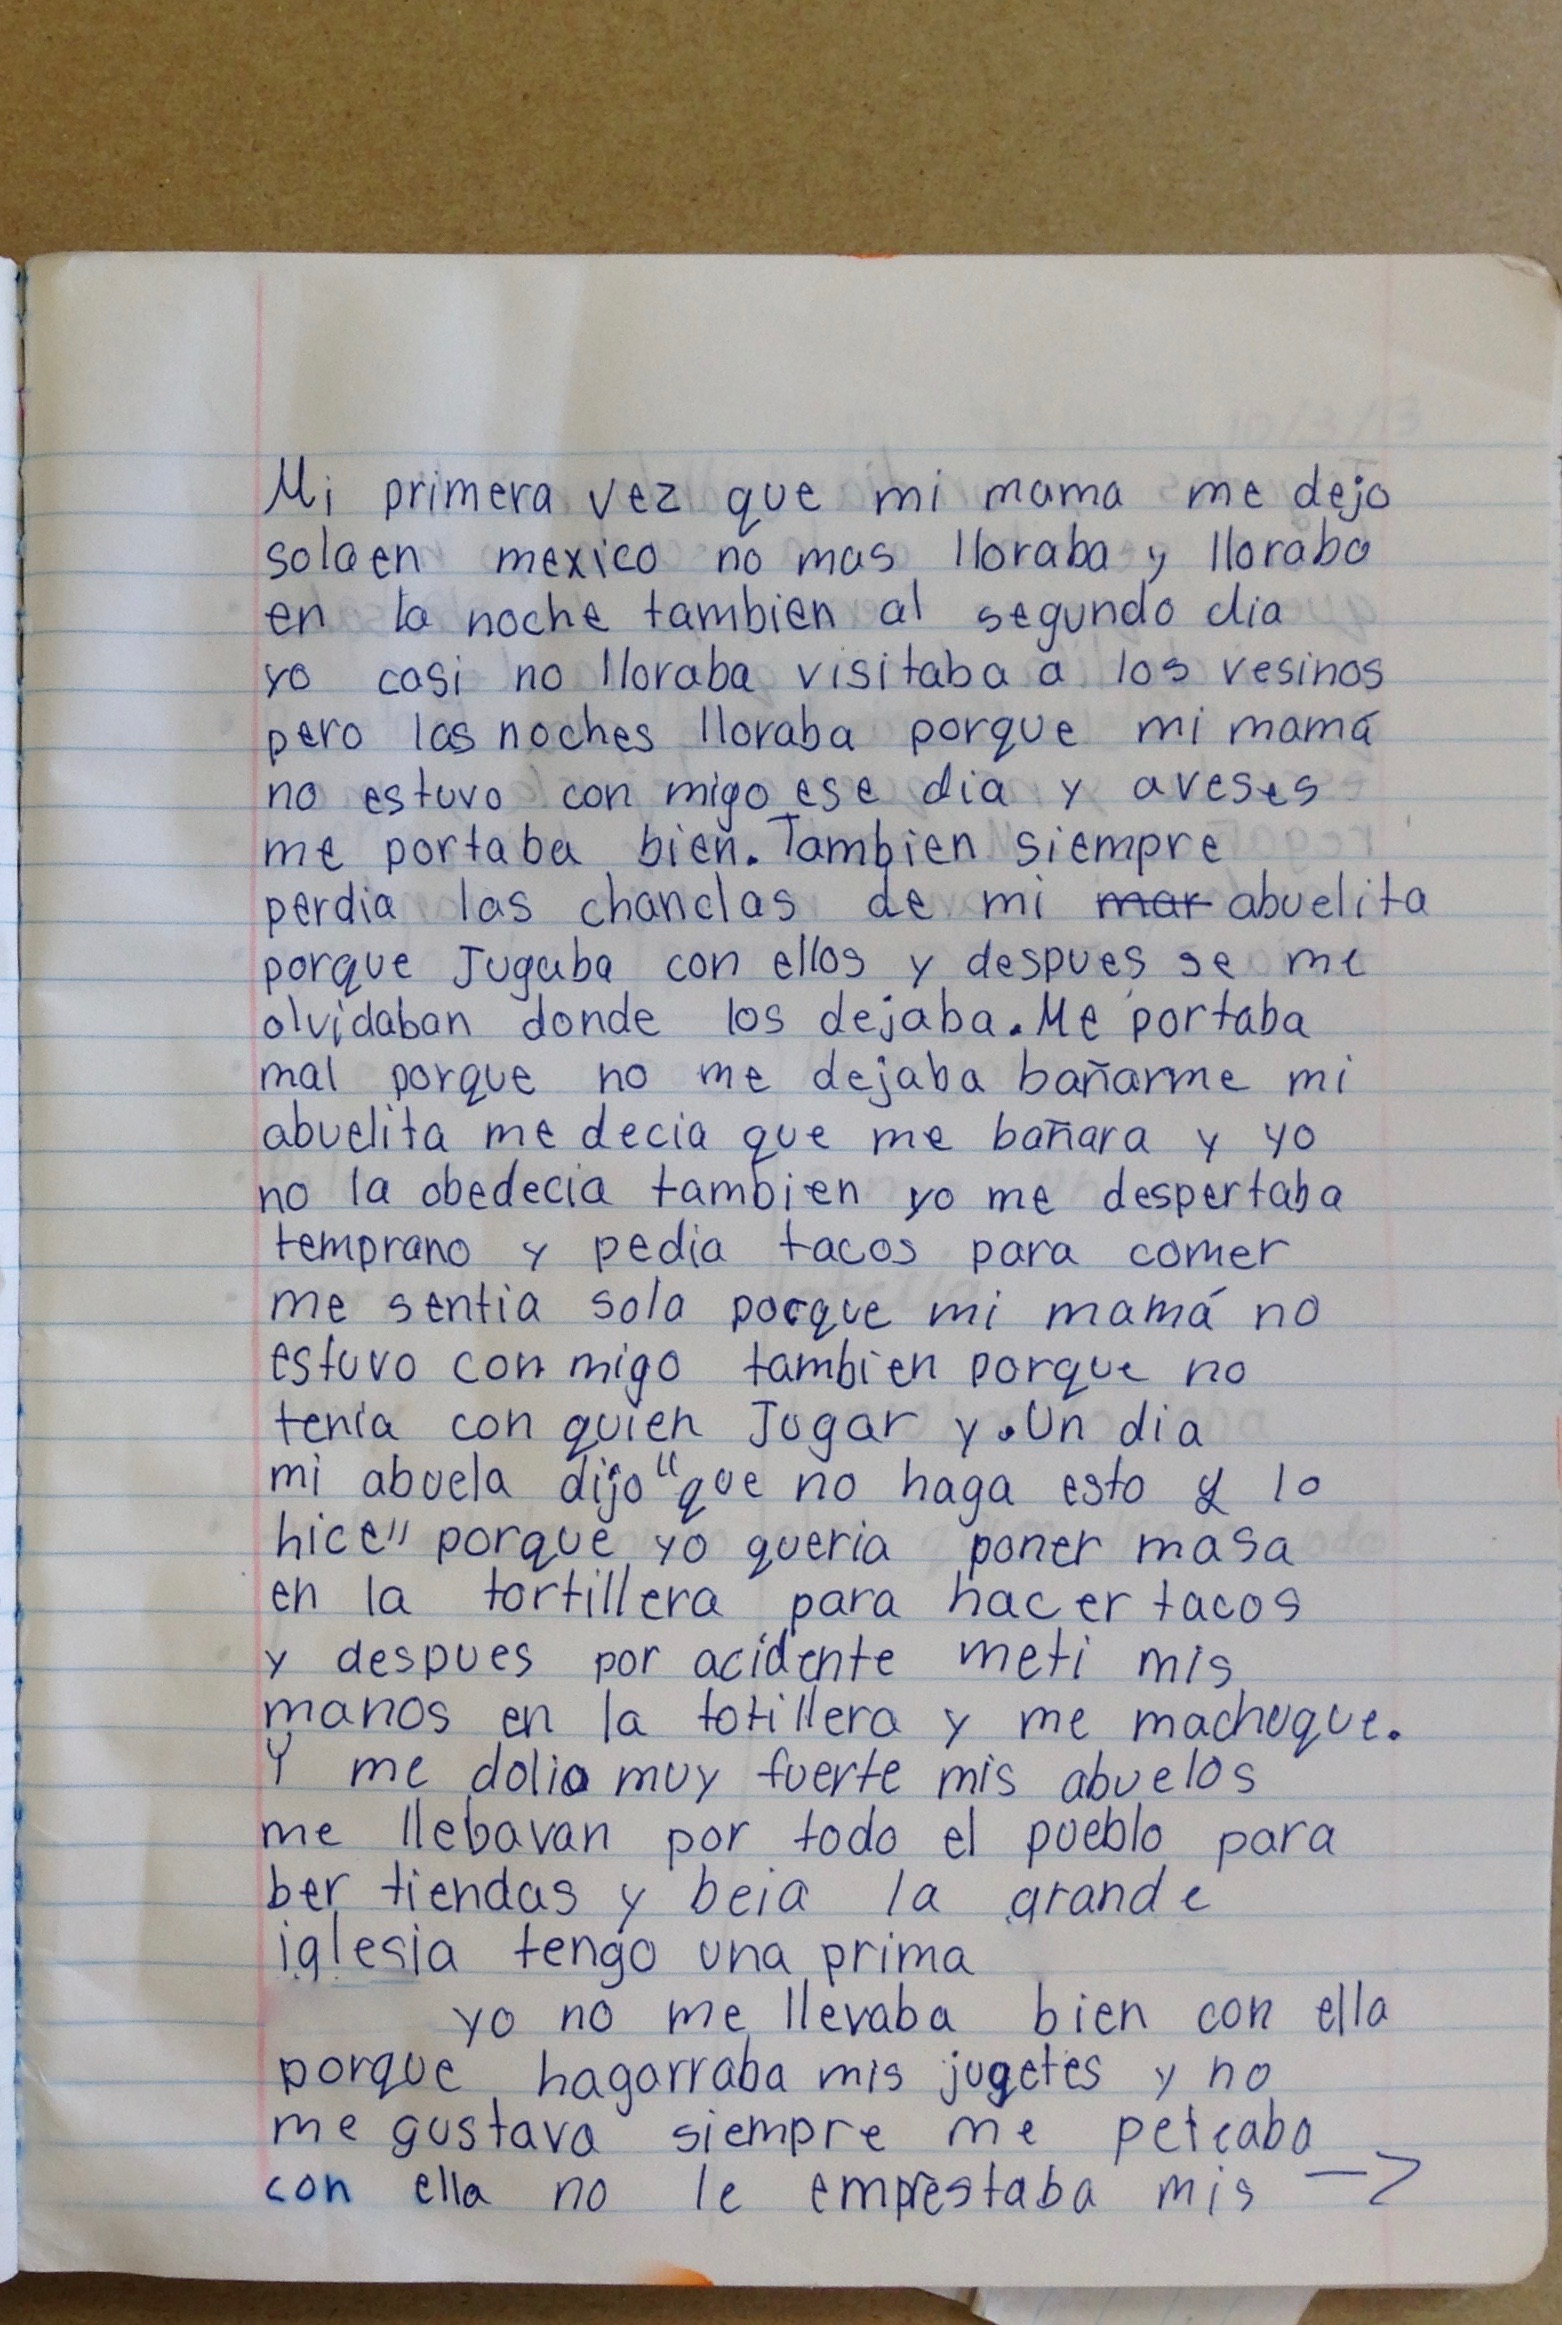 Mi primera vez que mi mama me dejo
sola en mexico no mas lloraba y lloraba
en la noche tambien al segundo dia
yo casi no lloraba visitaba a los vesinos
pero las noches lloraba porque mi mamá
no estuvo con migo ese dia y aveses
me portaba bien. Tambien siempre
perdia las chanclas de mi mar abuelita
porque Jugaba con ellos y despues se me
olvidaban donde los dejaba. Me portaba
mal porque no me dejaba bañarme mi
abuelita me decia que me bañara y yo
no la obedecia tambien yo me despertaba
temprano y pedia tacos para comer
me sentia sola porque mi mamá no
estuvo con migo tambien porque no
tenia con quien Jugar y. Un dia
mi abuela dijo "que no haga esto y lo
hice" porque yo queria poner masa
en la tortillera para hacer tacos
y despues por acidente meti mis
manos en la totillera y me machuque.
Y me dolio muy fuerte mis abuelos
me llebavan por todo el pueblo para
ber tiendas y beia la grande
iglesia tengo una prima
yo no me llevaba bien con ella
porque hagarraba mis jugetes y no
me gustava siempre me peleaba
con ella no le emprestaba mis —>